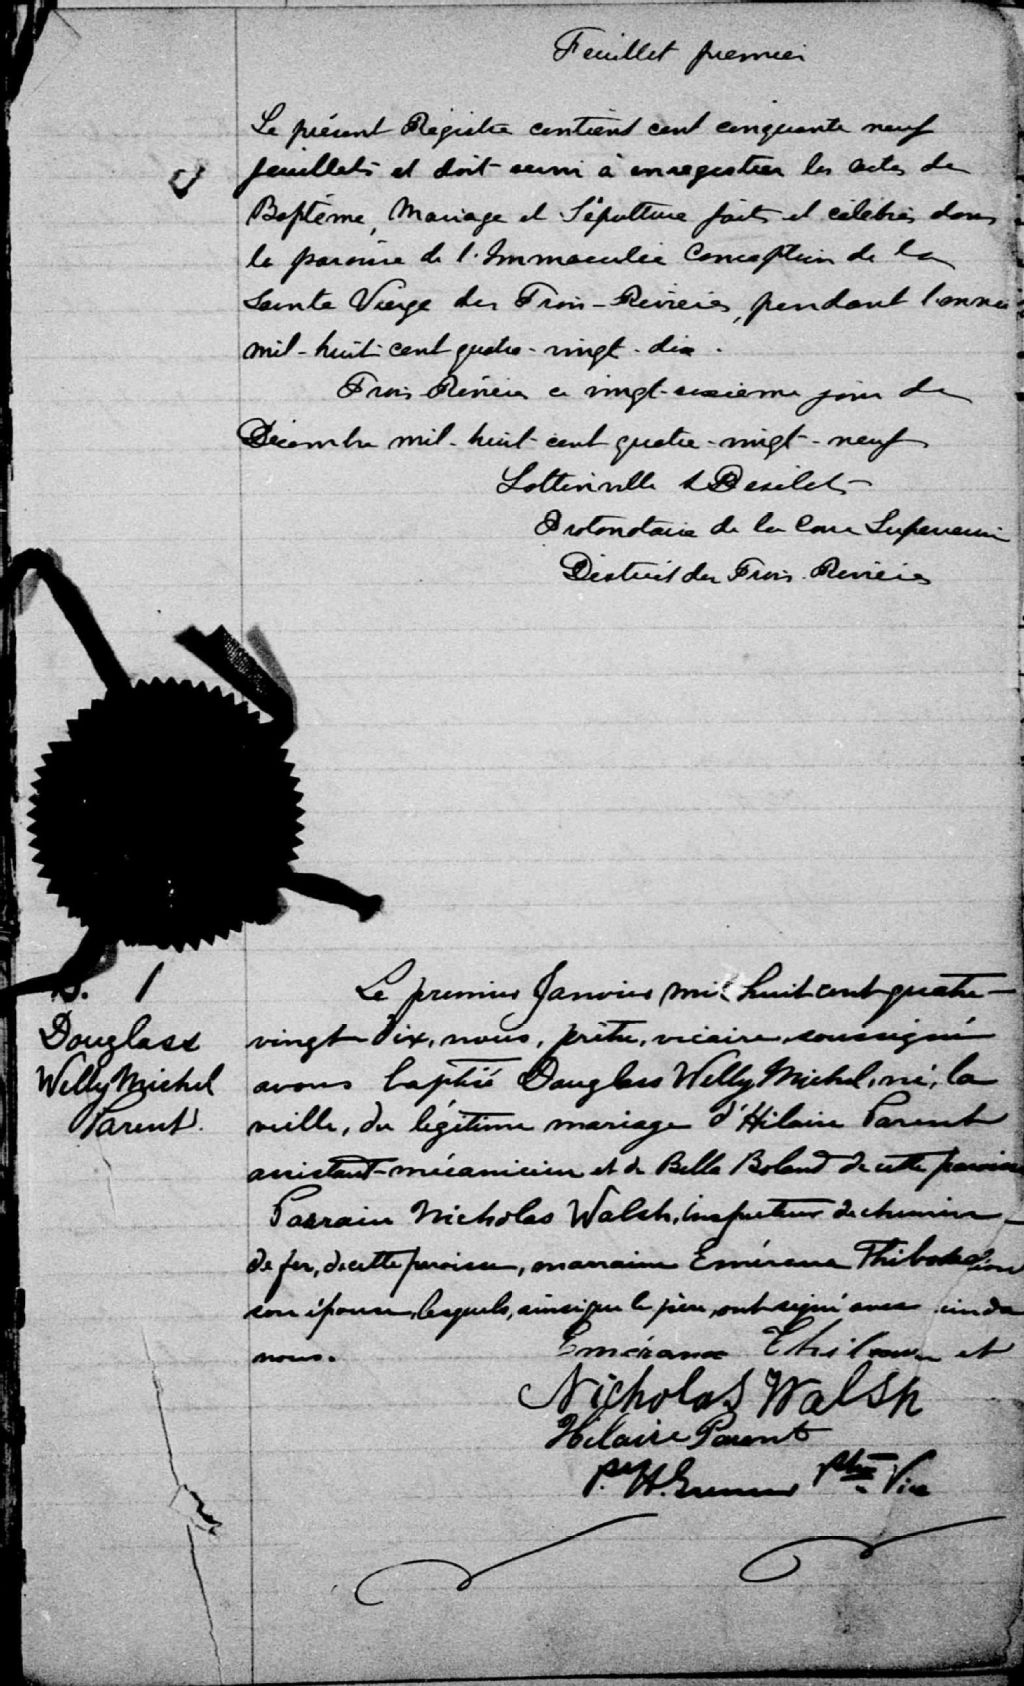 Feuillet premier
Le présent Régistre contient cent cinquante neuf
feuillets et doit servir à enregistrer les actes de
Baptême, Mariage et Sépulture faits et célébrés dans
la paroisse de l'Immaculée Conception de la
Sainte Vierge des Trois-Rivières, pendant l'année
mil-huit-cent quatre-vingt-dix.
Trois-Rivières ce vingt-sixième jour de
Décembre mil-huit-cent quatre-vingt-neuf
Lottinville & Desilets
Protonotaire de la Cour Supérieure
District des Trois-Rivières
B. 1
Douglass
Willy Michel
Parent.
Le premier Janvier mil huit cent quatre-
vingt-dix, nous, prêtre, vicaire, soussigné
avons baptisé Douglass Willy Michel, né, la
veille, du légitime mariage d'Hilaire Parent
assistant-mécanicien et de Bella Boland de cette paroisse
Parrain Nicholas Walsh, inspecteur de chemin-
de fer, de cette paroisse, marraine Emérance
son épouse, lesquels, ainsi que le père, ont signé avec
nous. Emérance et
Nicholas Walsh
Hilaire Parent
P. H. Ptre Vic